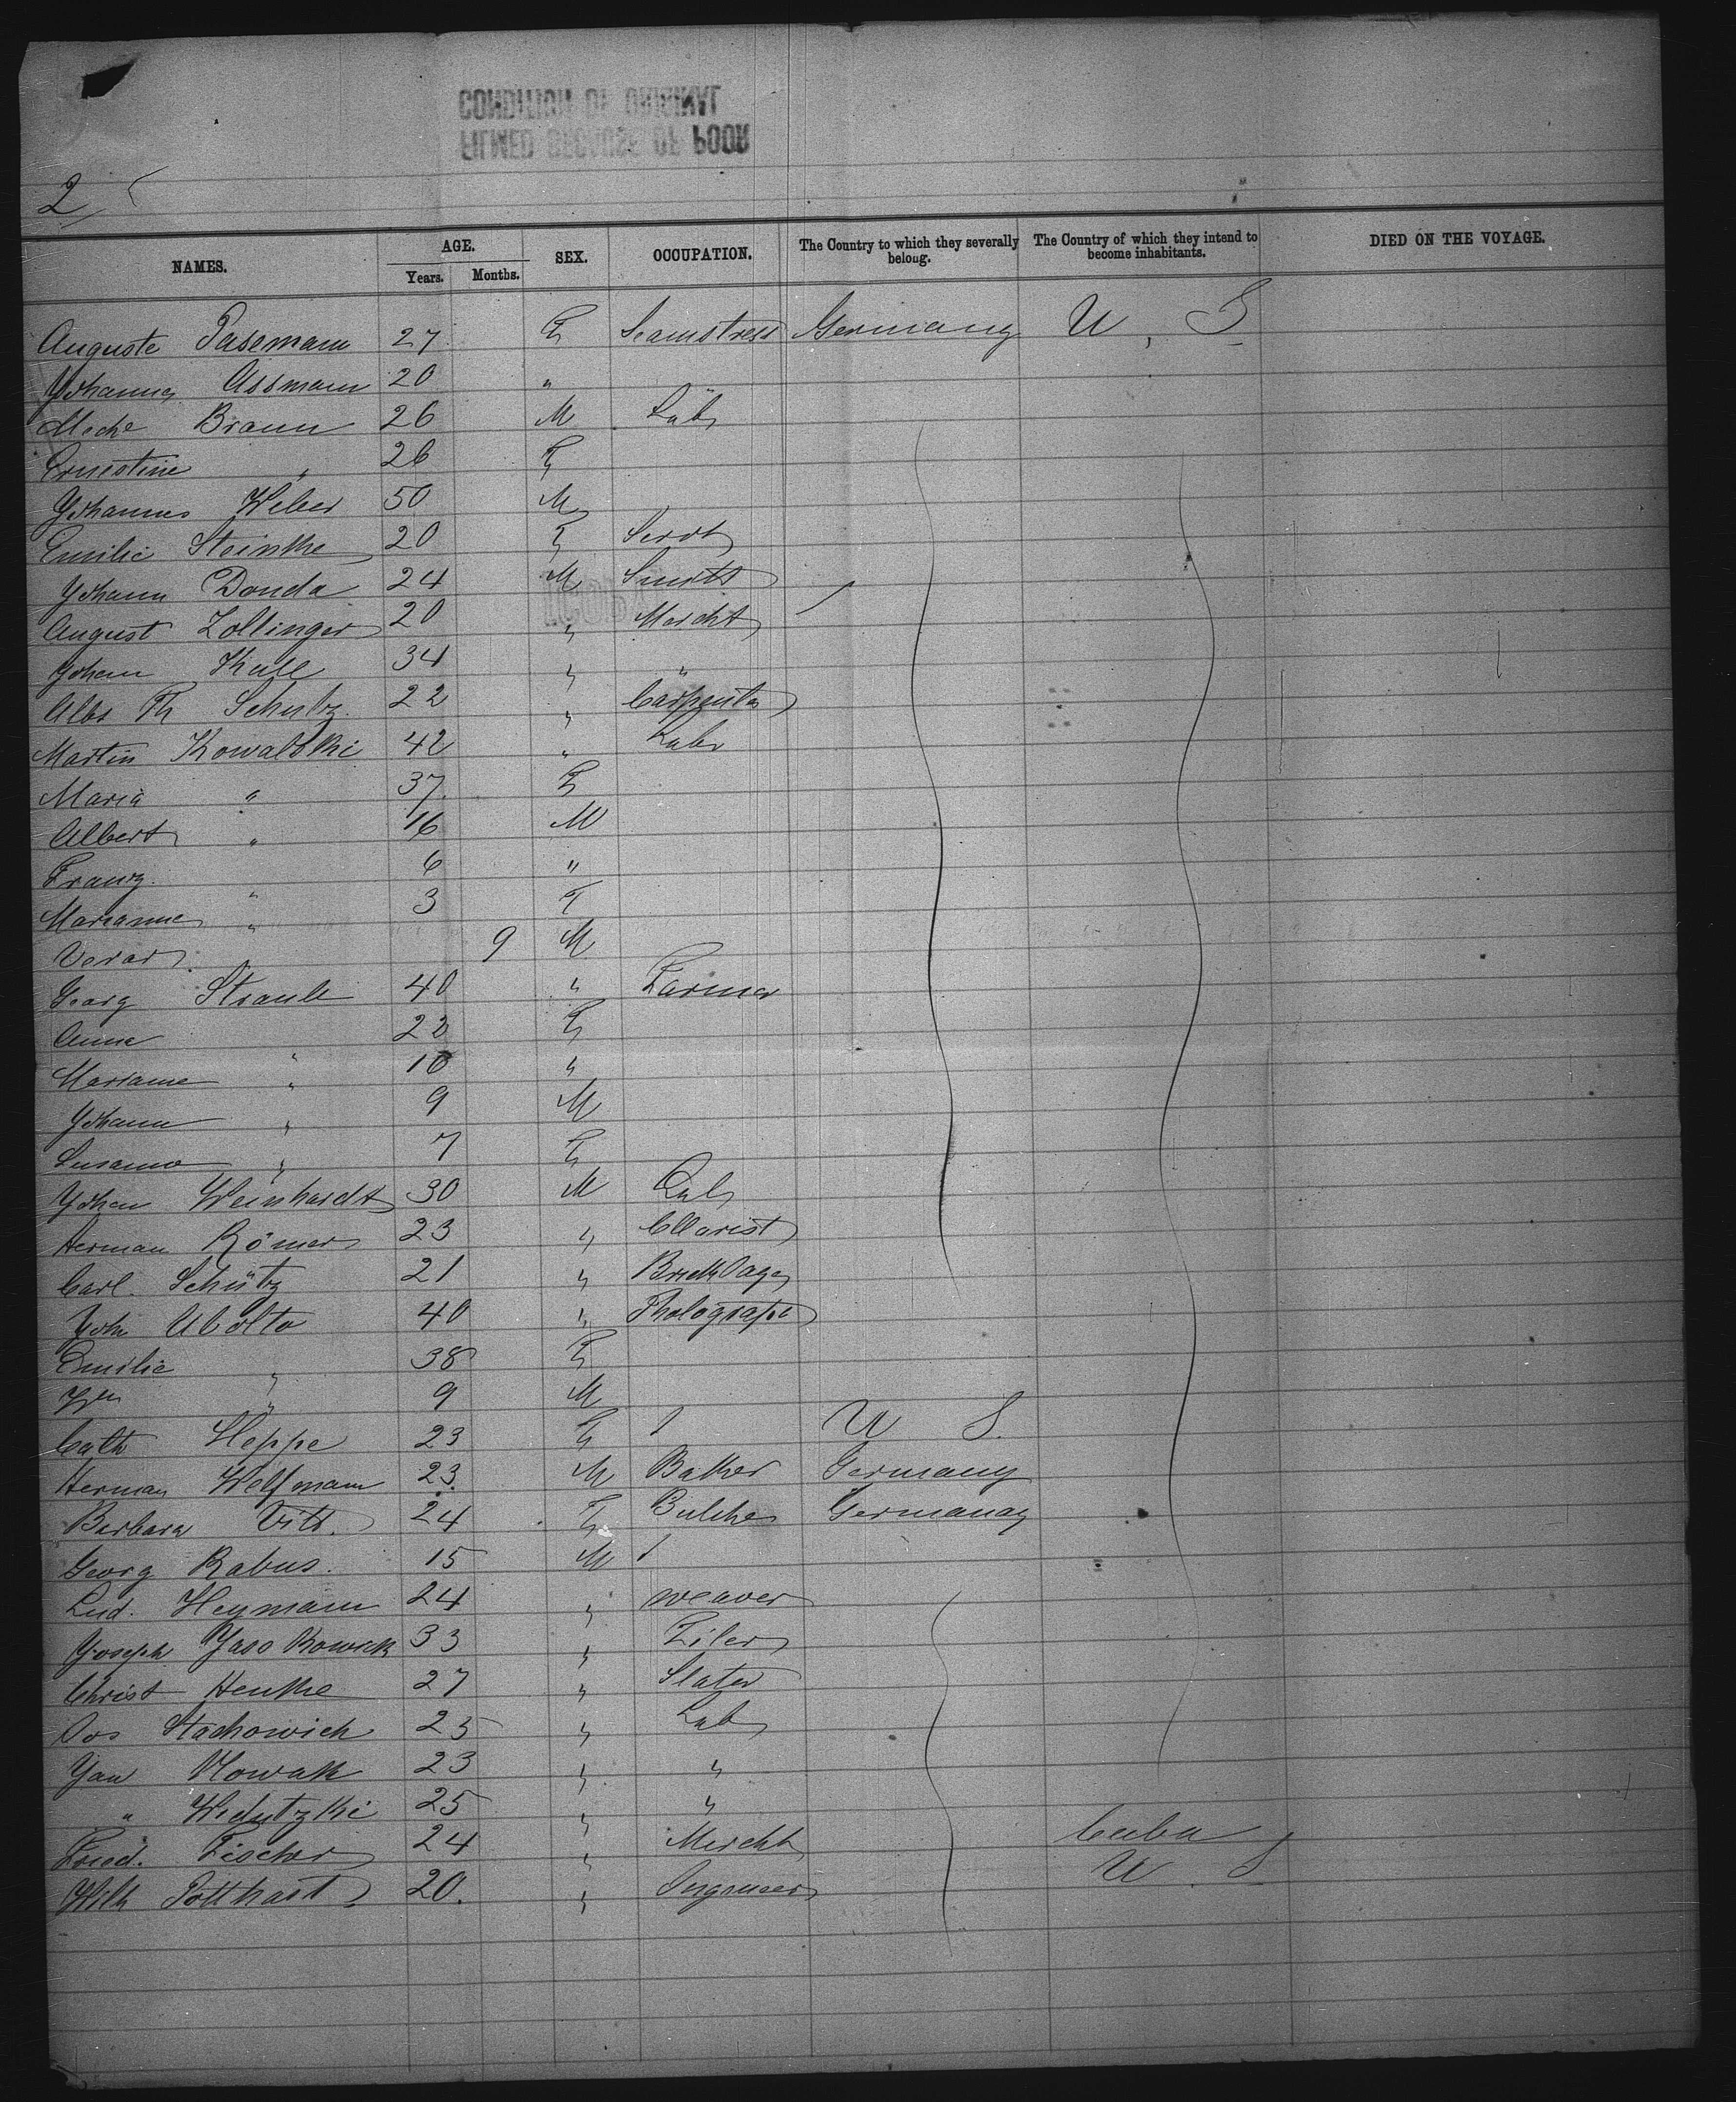 CONDITION OF ORIGINAL
FILMED BECAUSE OF POOR
2
NAMES. AGE. Years. Months. SEX. OCCUPATION. The Country to which they severally belong. The Country of which they intend to become inhabitants. DIED ON THE VOYAGE.
Auguste Pasemann 27 F Seamstress Germany U, S
Johanna Assmann 20 "
Braun 26 M Lab
Ernestine " 26 F
Johannes Weber 50 M
Emilie Steinke 20 F Servt
Johann Donda 24 M Smith
August Zollinger 20 " Mercht
Johann 34 " "
Albs Th Schulz 22 " Carpenter
Martin Kowalski 42 " Labr
Maria " 37 F
Albert " 16 M
Franz " 6 "
Marianne " 3 F
9 M
Georg Straub 40 " Farmer
Anna " 22 F
Marianne " 10 "
Johann " 9 M
Susanna " 7 F
Johan Weinhardt 30 M Lab
Herman Römer 23 "
Carl Schütz 21 "
Joh 40 " Photograph
Emilie " 38 F
" 9 M
Cath Heppe 23 F / U S.
Herman 23 M Baker Germany
Barbara Vitt. 24 F Germanay
Georg Rabus. 15 M /
Lud. Heymann 24 " weaver
Joseph 33 "
Christ Henke 27 " Slater
Stachowich 25 " Lab
Jan Nowak 23 " "
" 25 " "
Fried. Fischer 24 " Mercht Cuba
Wilh Potthast 20. " U. S